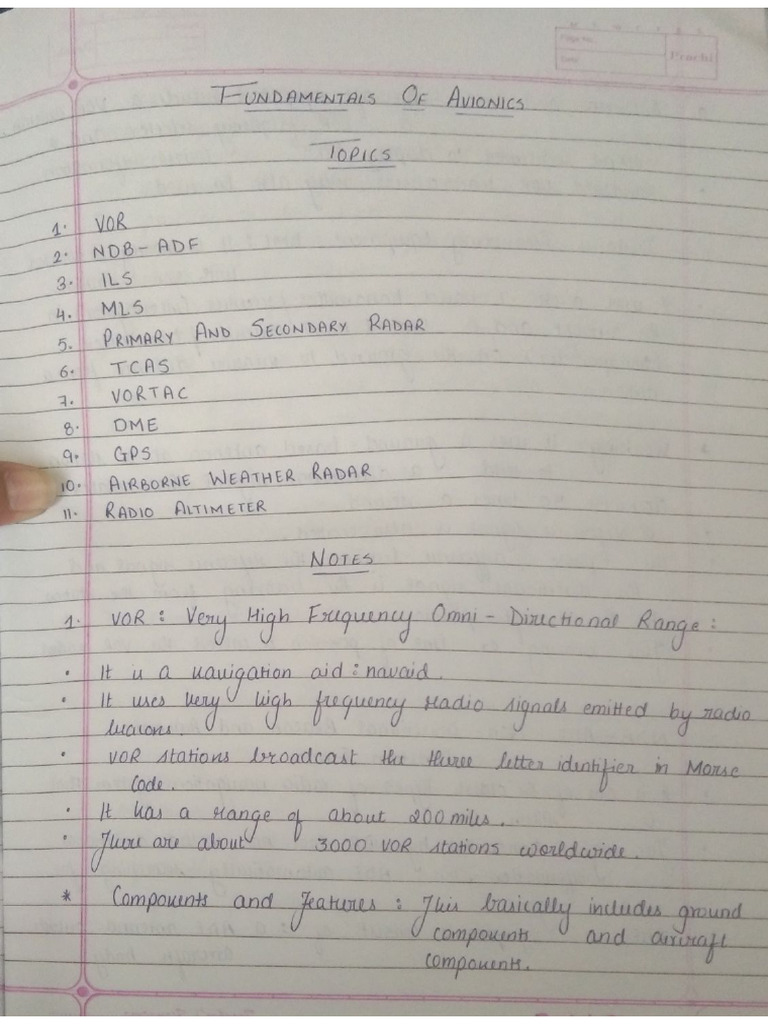 Page No.
Date
FUNDAMENTALS OF AVIONICS
TOPICS
1. VOR
2. NDB-ADF
3. ILS
4. MLS
5. PRIMARY AND SECONDARY RADAR
6. TCAS
7. VORTAC
8. DME
9. GPS
10. AIRBORNE WEATHER RADAR
11. RADIO ALTIMETER
NOTES
1. VOR : Very High Frequency Omni - Directional Range :
• It is a navigation aid : navaid.
• It uses very high frequency radio signals emitted by radio
beacons.
• VOR stations broadcast the three letter identifier in Morse
Code.
• It has a range of about 200 miles.
• There are about 3000 VOR stations worldwide.
* Components and Features : This basically includes ground
components and aircraft
components.